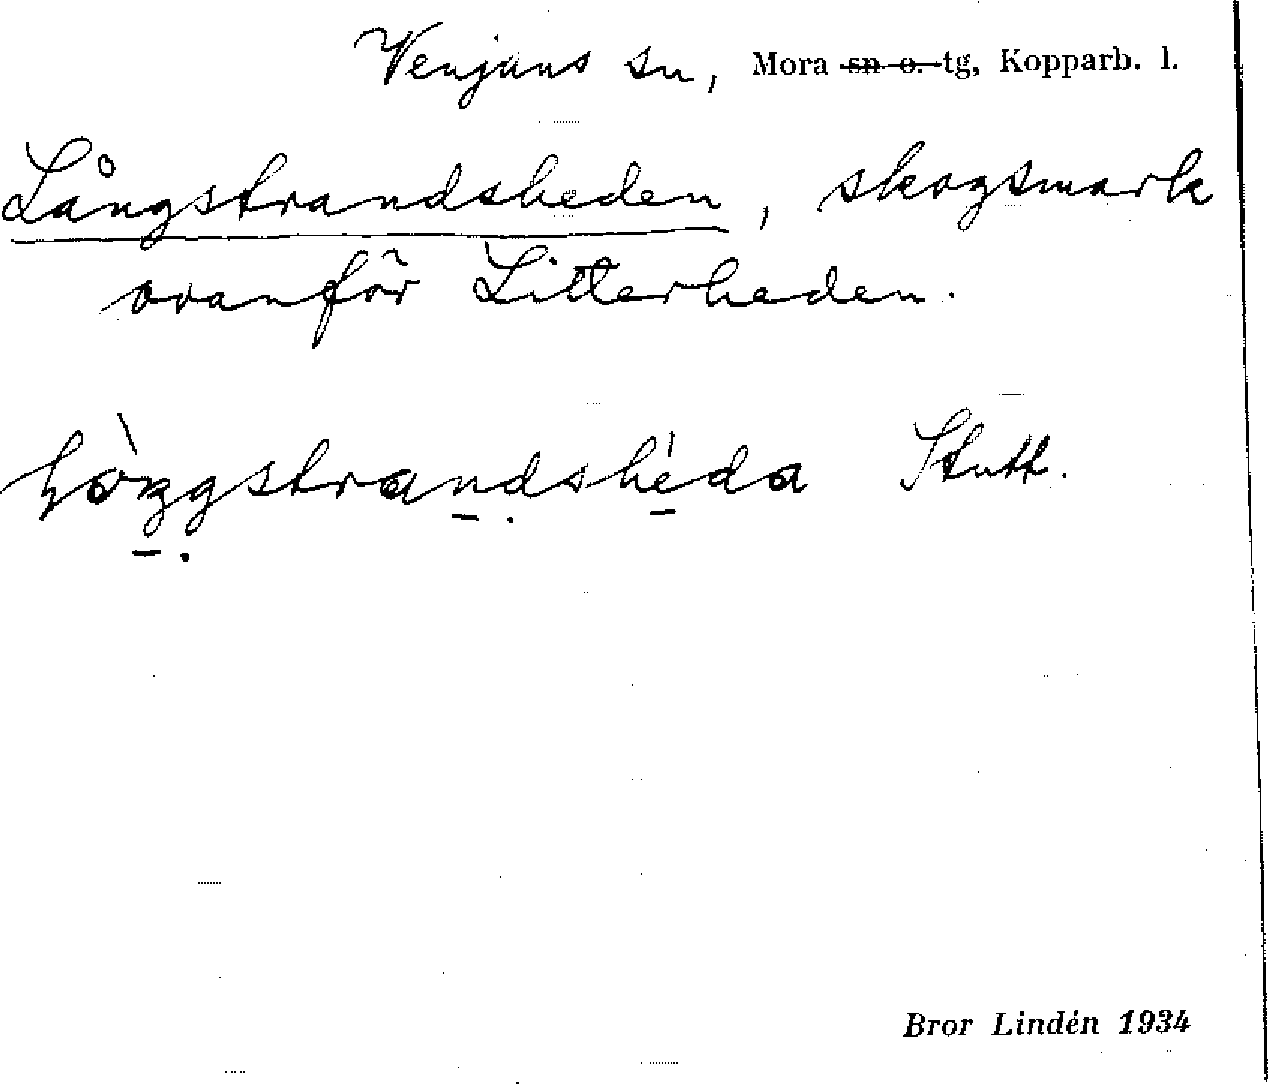 Venjans sn, Mora sn o. tg, Kopparb. l.
Långstrandsheden, skogsmark
ovanför Litterheden.
Stutt.
Bror Lindén 1934